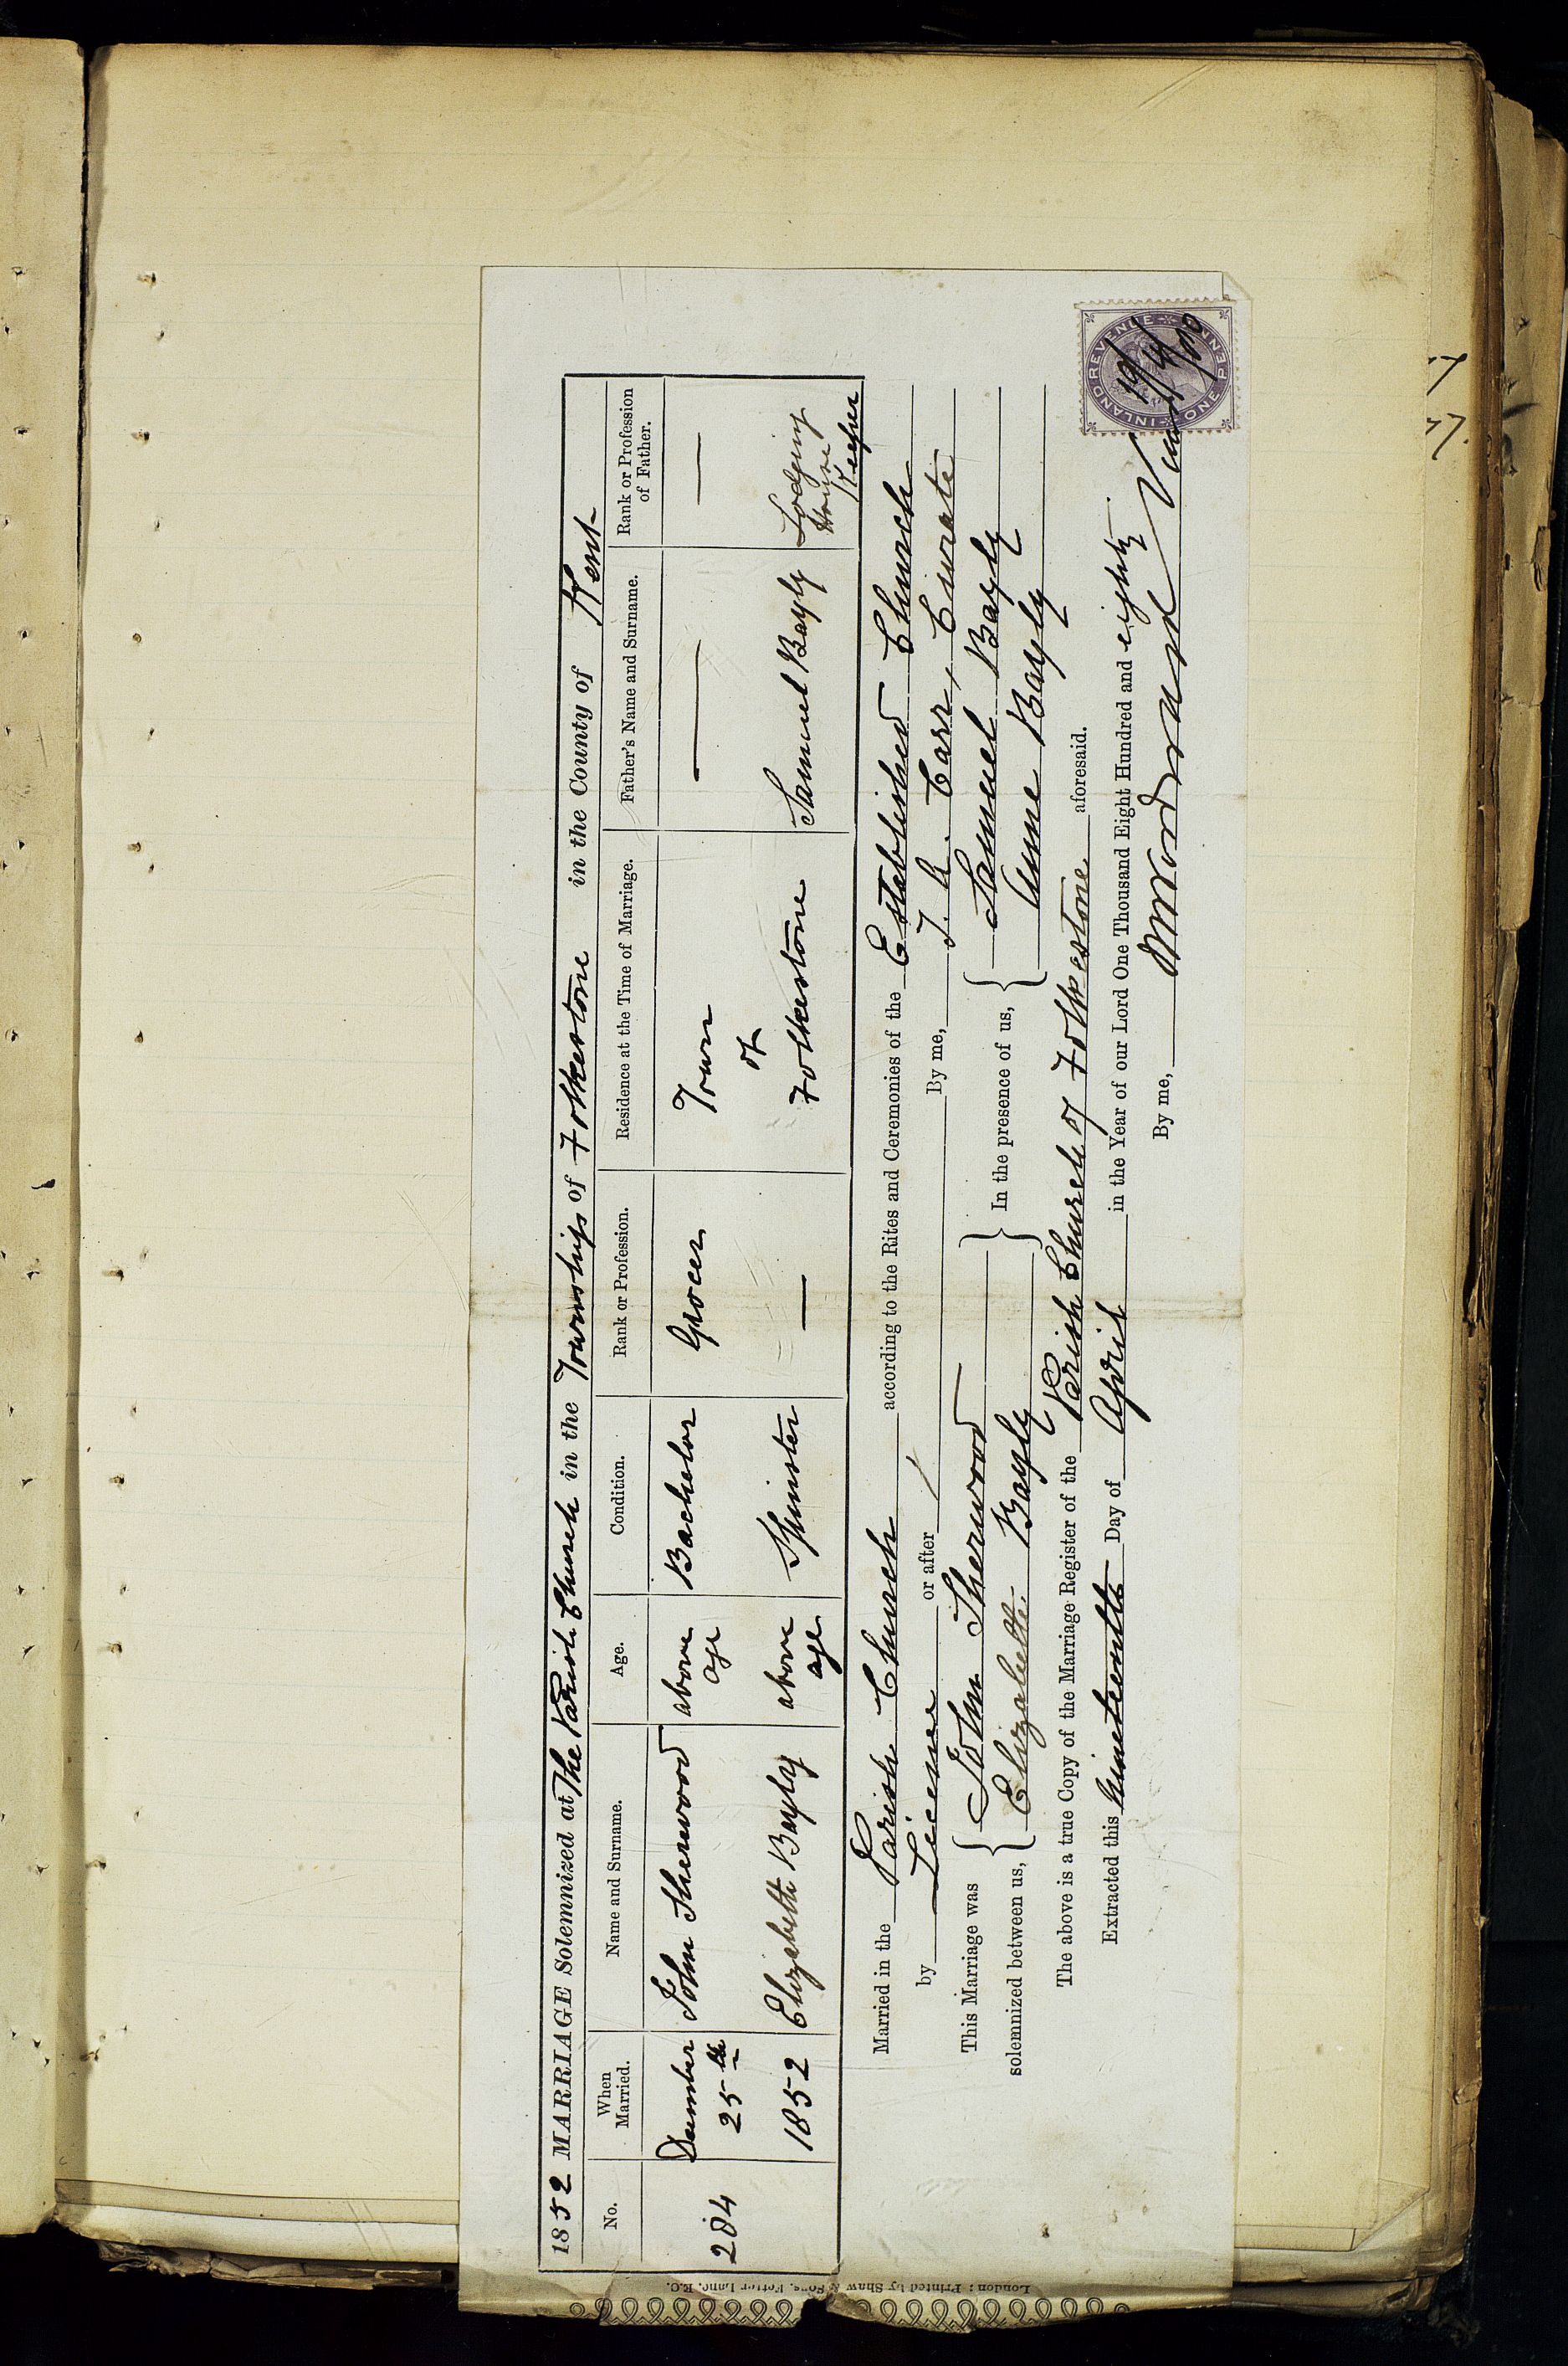 1852 MARRIAGE Solemnized at The Parish Church in the Township of Folkestone in the County of Kent
No. When Married. Name and Surname. Age. Condition. Rank or Profession. Residence at the Time of Marriage. Father's Name and Surname. Rank or Profession of Father.
284 December 25th 1852 John Sherwood above age Bachelor Grocer Town of Folkestone — —
Elizabeth Bayly above age Spinster — Samuel Bayly Lodging House Keeper
Married in the Parish Church according to the Rites and Ceremonies of the Established Church
by Licence or after By me, T. A. Carr, Curate
This Marriage was solemnized between us, { John Sherwood } In the presence of us, { Samuel Bayly
{ Elizabeth Bayly } { Anne Bayly
The above is a true Copy of the Marriage Register of the Parish Church of Folkestone aforesaid.
Extracted this Nineteenth Day of April in the Year of our Lord One Thousand Eight Hundred and eighty
By me, Vicar
INLAND REVENUE
ONE PENNY
19/4/80
London: Printed by Shaw & Sons, Fetter Lane, E.C.